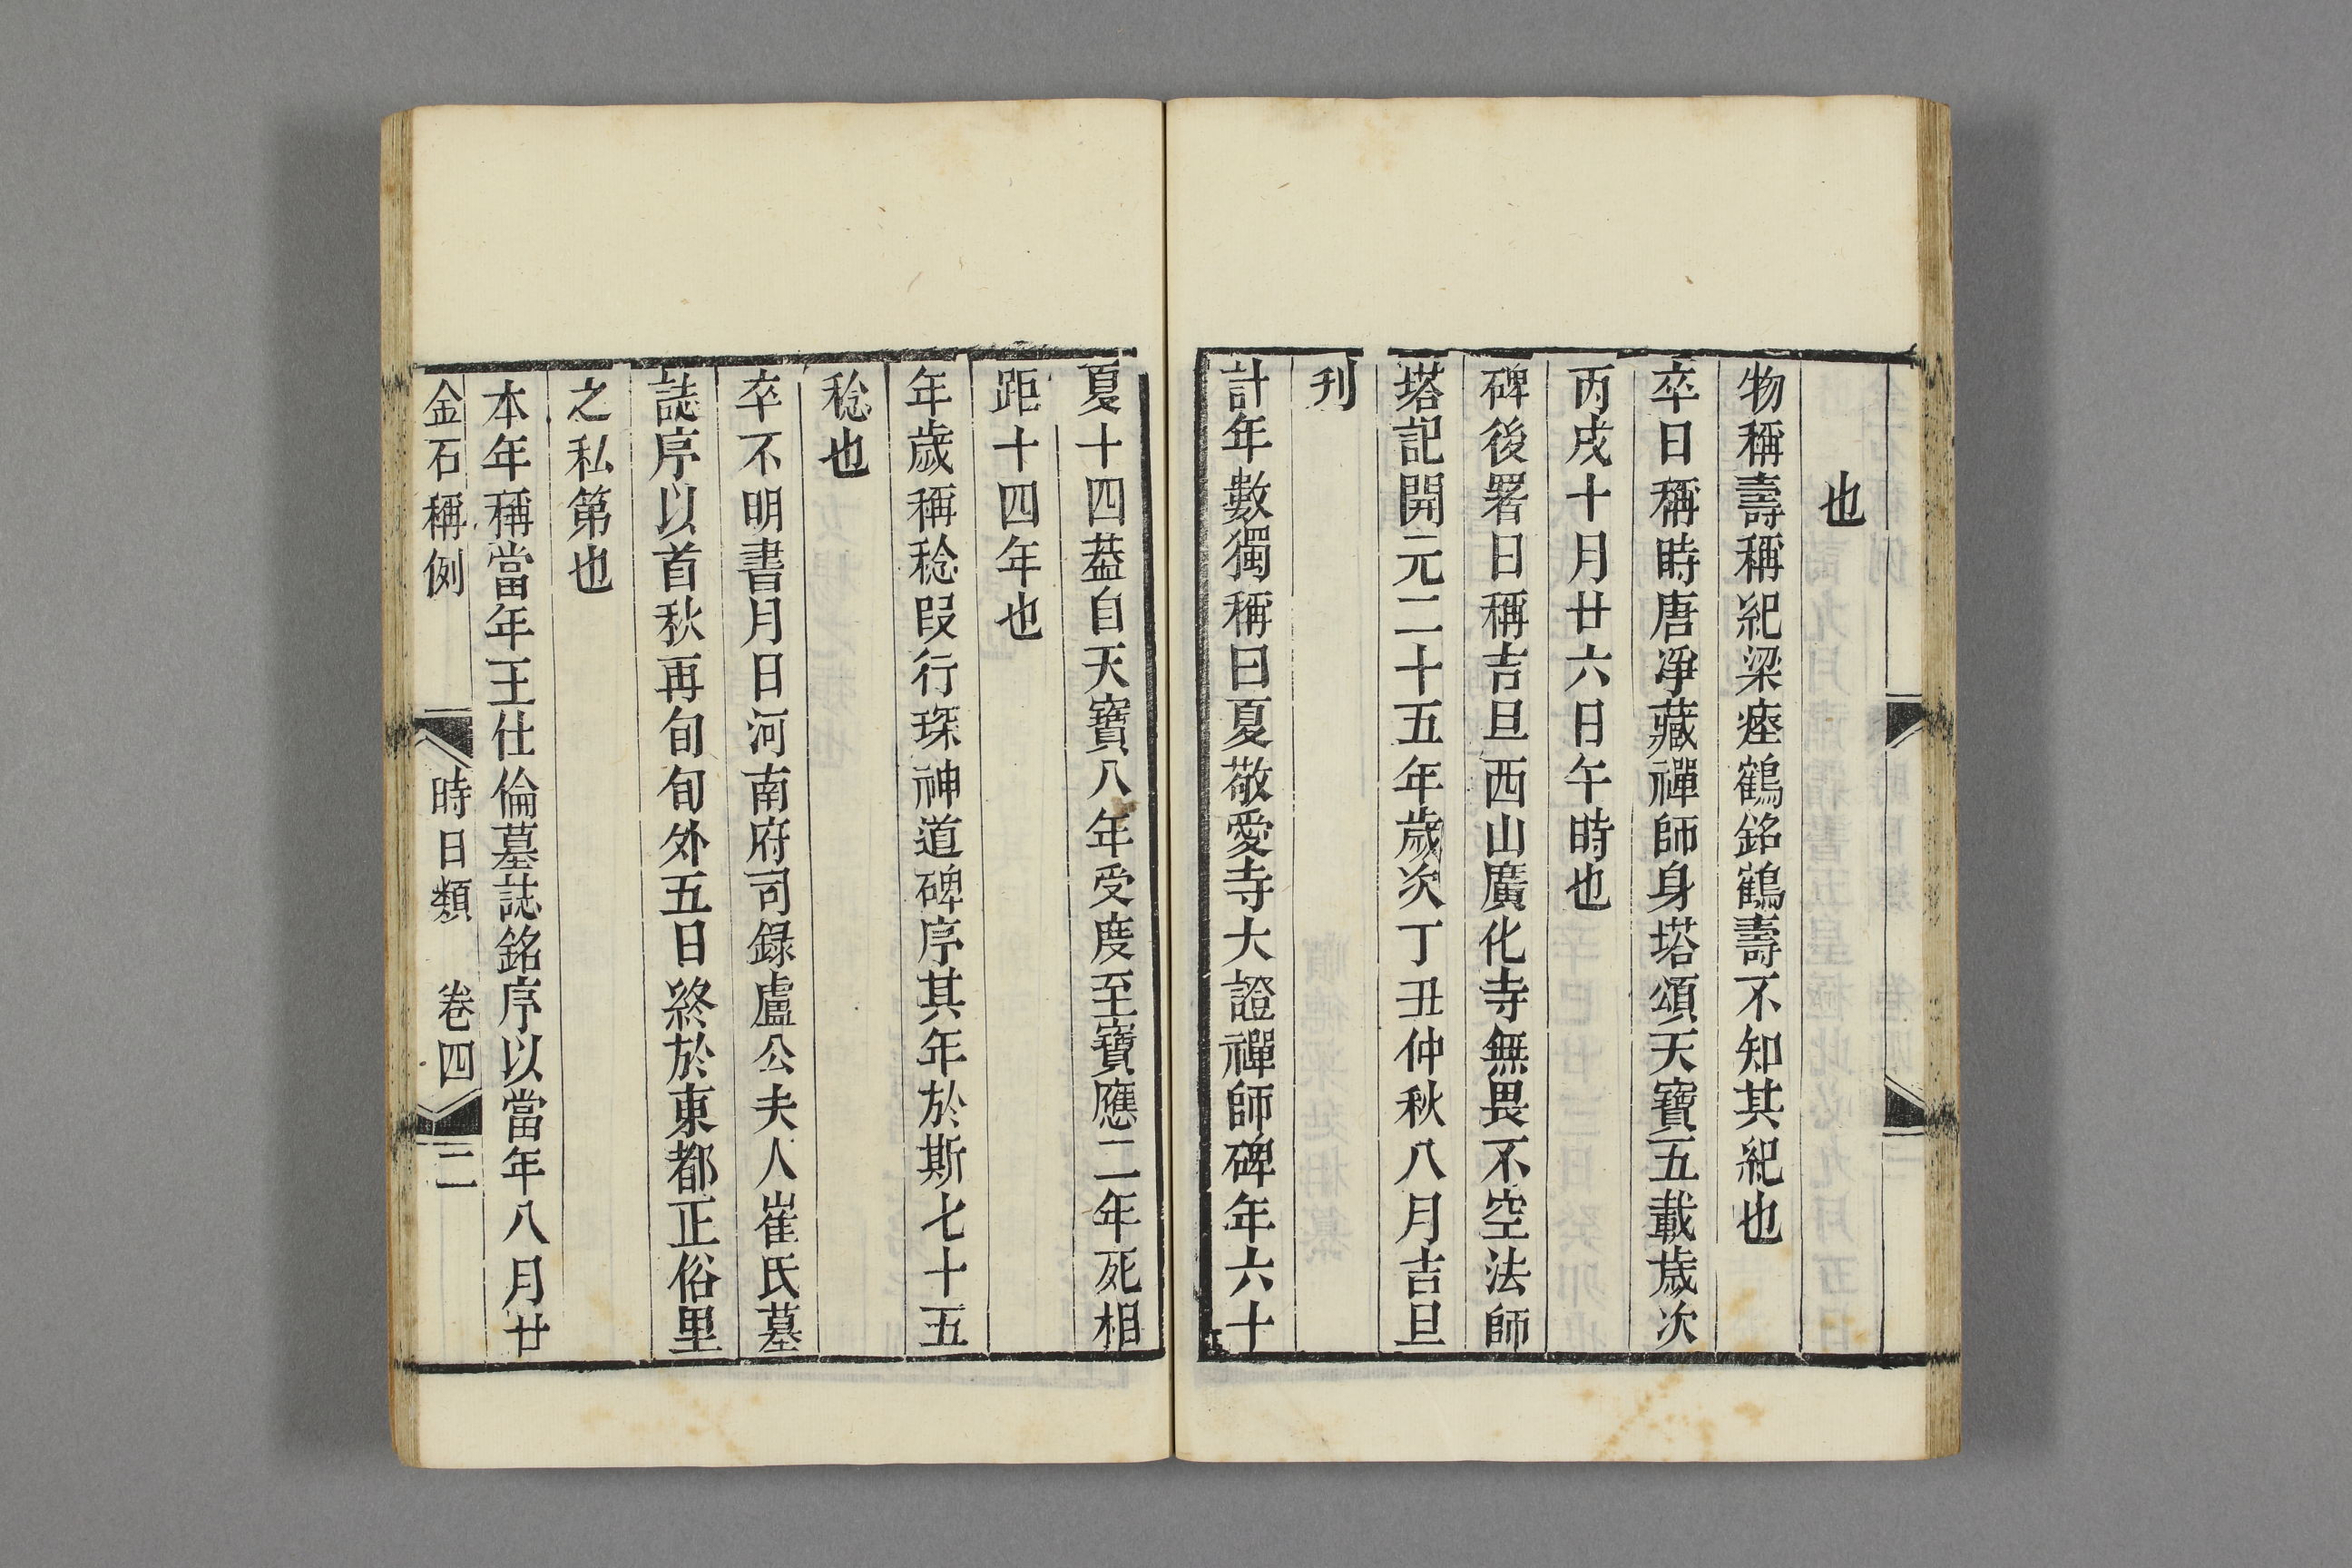 也
物稱壽稱紀梁瘞鶴銘鶴壽不知其紀也
卒日稱時唐凈藏禪師身塔頌天寶五載歲次
丙戌十月廿六日午時也
碑後署日稱吉旦西山廣化寺無畏不空法師
塔記開元二十五年歲次丁丑仲秋八月吉旦
刋
計年數獨稱曰夏敬愛寺大證禪師碑年六十
夏十四葢自天寶八年受度至寶應二年死相
距十四年也
年歲稱稔叚行琛神道碑序其年於斯七十五
稔也
卒不明書月日河南府司錄盧公夫人崔氏墓
誌序以首秋再旬旬外五日終於東都正俗里
之私第也
本年稱當年王仕倫墓誌銘序以當年八月廿
金石稱例 時日類 卷四 二